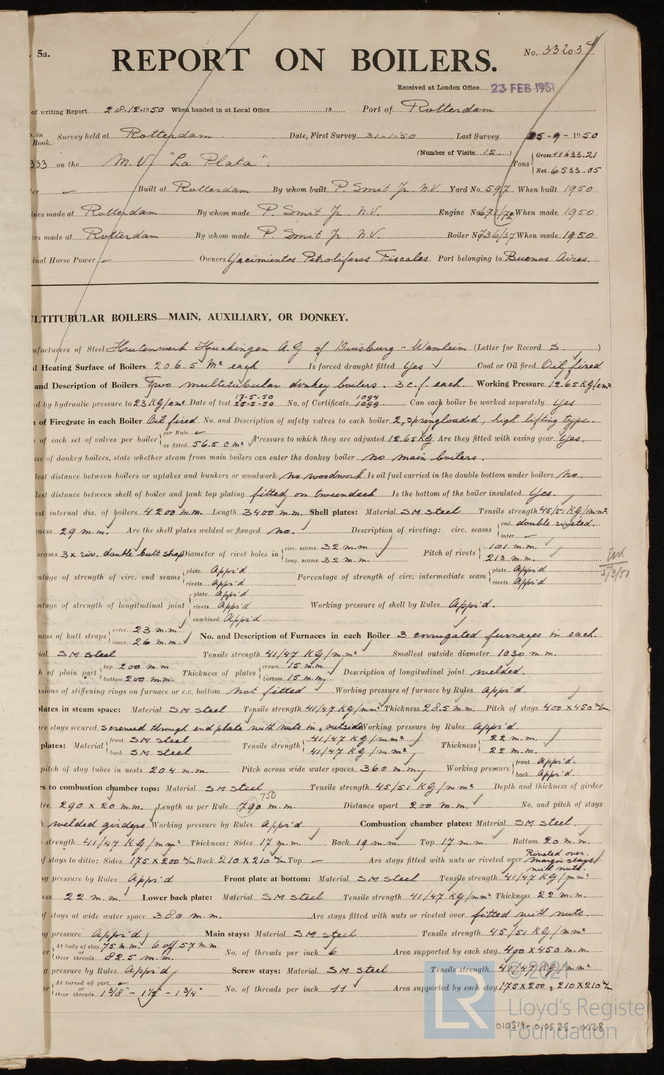 5a.
No. 33203
REPORT ON BOILERS.
Received at London Office 23 FEB 1951
of writing Report 28.12.1950 When handed in at Local Office 19 Port of Rotterdam
Survey held at Rotterdam Date, First Survey 31-1-50 Last Survey 25-9-1950
Book.
(Number of Visits 12)
333 on the M.V. "La Plata". Tons { Gross 11633.21
Net 6533.05
Built at Rotterdam By whom built P. Smit Jr. N.V. Yard No. 597 When built 1950
ines made at Rotterdam By whom made P. Smit Jr. N.V. Engine No. When made 1950
rs made at Rotterdam By whom made P. Smit Jr. N.V. Boiler No. 736/37 When made 1950
inal Horse Power Owners Yacimientos Petroliferos Fiscales Port belonging to Buenos Aires.
ULTITUBULAR BOILERS—MAIN, AUXILIARY, OR DONKEY.
ufacturers of Steel A.G of Duisburg - Wanheim (Letter for Record S.)
l Heating Surface of Boilers 206.5 M² each Is forced draught fitted Yes Coal or Oil fired Oil fired
and Description of Boilers Two multitubular donkey boilers. 3 c.f. each. Working Pressure 12.65 Kg/cm²
ed by hydraulic pressure to 23 Kg/cm² Date of test 17-5-50 No. of Certificate 1094 Can each boiler be worked separately Yes
25-5-50 1099
of Firegrate in each Boiler Oil fired No. and Description of safety valves to each boiler 2, springloaded, high lifting type.
of each set of valves per boiler { per Rule
as fitted 56.5 cm² Pressure to which they are adjusted 12.65 Kg Are they fitted with easing gear Yes.
se of donkey boilers, state whether steam from main boilers can enter the donkey boiler no main boilers.
lest distance between boilers or uptakes and bunkers or woodwork no woodwork Is oil fuel carried in the double bottom under boilers No.
lest distance between shell of boiler and tank top plating fitted on tweendeck Is the bottom of the boiler insulated Yes.
est internal dia. of boilers 4200 mm. Length 3400 mm. Shell plates: Material S.M Steel Tensile strength 45/51 Kg/mm²
ness 29 m.m. Are the shell plates welded or flanged no. Description of riveting: circ. seams { end double riveted.
inter.
seams 3x riv. double butt strap Diameter of rivet holes in { circ. seams 32 m.m
long. seams 32 m.m Pitch of rivets { 101 m.m.
213 m.m.
ntage of strength of circ. end seams { plate Appr'd
rivets Appr'd Percentage of strength of circ. intermediate seam { plate Appr'd
rivets Appr'd
ntage of strength of longitudinal joint { plate Appr'd
rivets Appr'd
combined Appr'd Working pressure of shell by Rules Appr'd.
ness of butt straps { outer 23 m.m.
inner 26 m.m. No. and Description of Furnaces in each Boiler 3 corrugated furnaces in each.
ial S.M Steel Tensile strength 41/47 Kg/mm² Smallest outside diameter 1030 m.m.
h of plain part { top 200 m.m
bottom 200 m.m. Thickness of plates { crown 15 m.m.
bottom 15 m.m. Description of longitudinal joint welded.
sions of stiffening rings on furnace or c.c. bottom not fitted Working pressure of furnace by Rules Appr'd.
plates in steam space: Material S.M Steel Tensile strength 41/47 Kg/mm² Thickness 28.5 m.m. Pitch of stays 400 x 450 m/m.
re stays secured screwed through end plate with nuts in & outside Working pressure by Rules Appr'd.
plates: Material { front S.M Steel
back S.M Steel Tensile strength { 41/47 Kg/mm²
41/47 Kg/mm² Thickness { 22 m.m.
22 m.m.
pitch of stay tubes in nests 204 m.m. Pitch across wide water spaces 360 m.m. Working pressure { front Appr'd.
back Appr'd.
rs to combustion chamber tops: Material S.M Steel Tensile strength 45/51 Kg/mm² Depth and thickness of girder
750
tre 290 x 20 m.m. Length as per Rule 790 m.m. Distance apart 200 m.m. No. and pitch of stays
h welded girders Working pressure by Rules Appr'd Combustion chamber plates: Material S.M Steel
strength 41/47 Kg/mm² Thickness: Sides 17 m.m. Back 19 mm. Top 17 m.m. Bottom 20 m.m.
of stays to ditto: Sides 175 x 200 Back 210 x 210 Top — Are stays fitted with nuts or riveted over Riveted over. margin stays with nuts.
g pressure by Rules Appr'd Front plate at bottom: Material S.M Steel Tensile strength 41/47 Kg/mm²
ess 22 m.m. Lower back plate: Material S.M Steel Tensile strength 41/47 Kg/mm² Thickness 22 m.m.
f stays at wide water space 380 m.m. Are stays fitted with nuts or riveted over fitted with nuts.
g pressure Appr'd Main stays: Material S.M Steel Tensile strength 45/51 Kg/mm²
At body of stay 75 m.m. 6 off 57 m.m.
or
Over threads 82.5 m.m. No. of threads per inch 6 Area supported by each stay 400 x 450 m.m.
g pressure by Rules Appr'd Screw stays: Material S.M Steel Tensile strength 41/47 Kg/mm²
At turned off part
or
Over threads 1 3/8" - 1 1/2" - 1 3/4" No. of threads per inch 11 Area supported by each stay 175 x 200, 210 x 210 m/m
© 2021
LR
Lloyd's Register
Foundation
010519-010526-0028